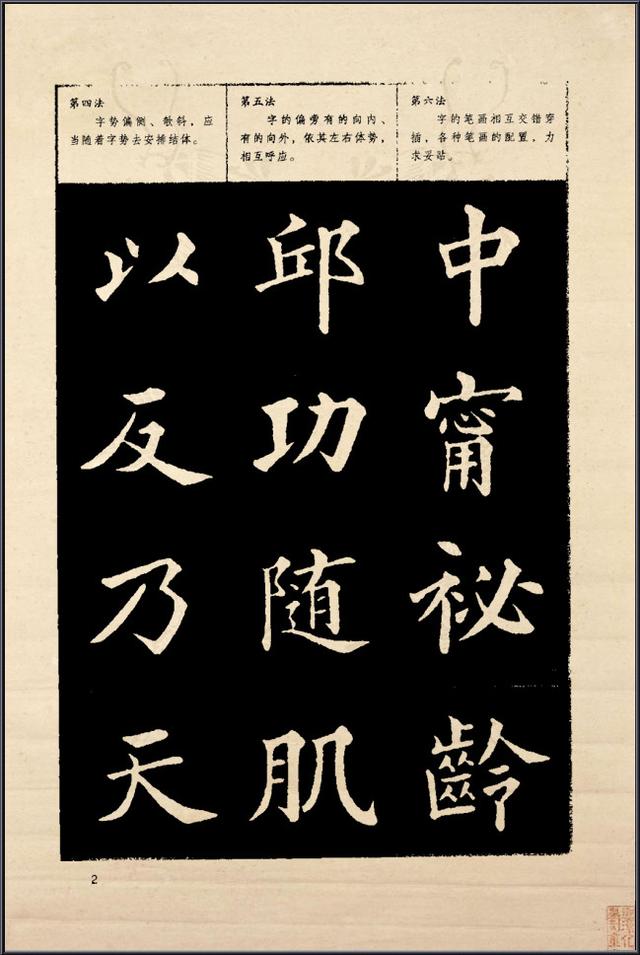 第四法
字势偏侧、欹斜，应
当随着字势去安排结体。
第五法
字的偏旁有的向内、
有的向外，依其左右体势，
相互呼应。
第六法
字的笔画相互交错穿
插，各种笔画的配置，力
求妥贴。
以反乃天
邱功随肌
中甯祕齡
2